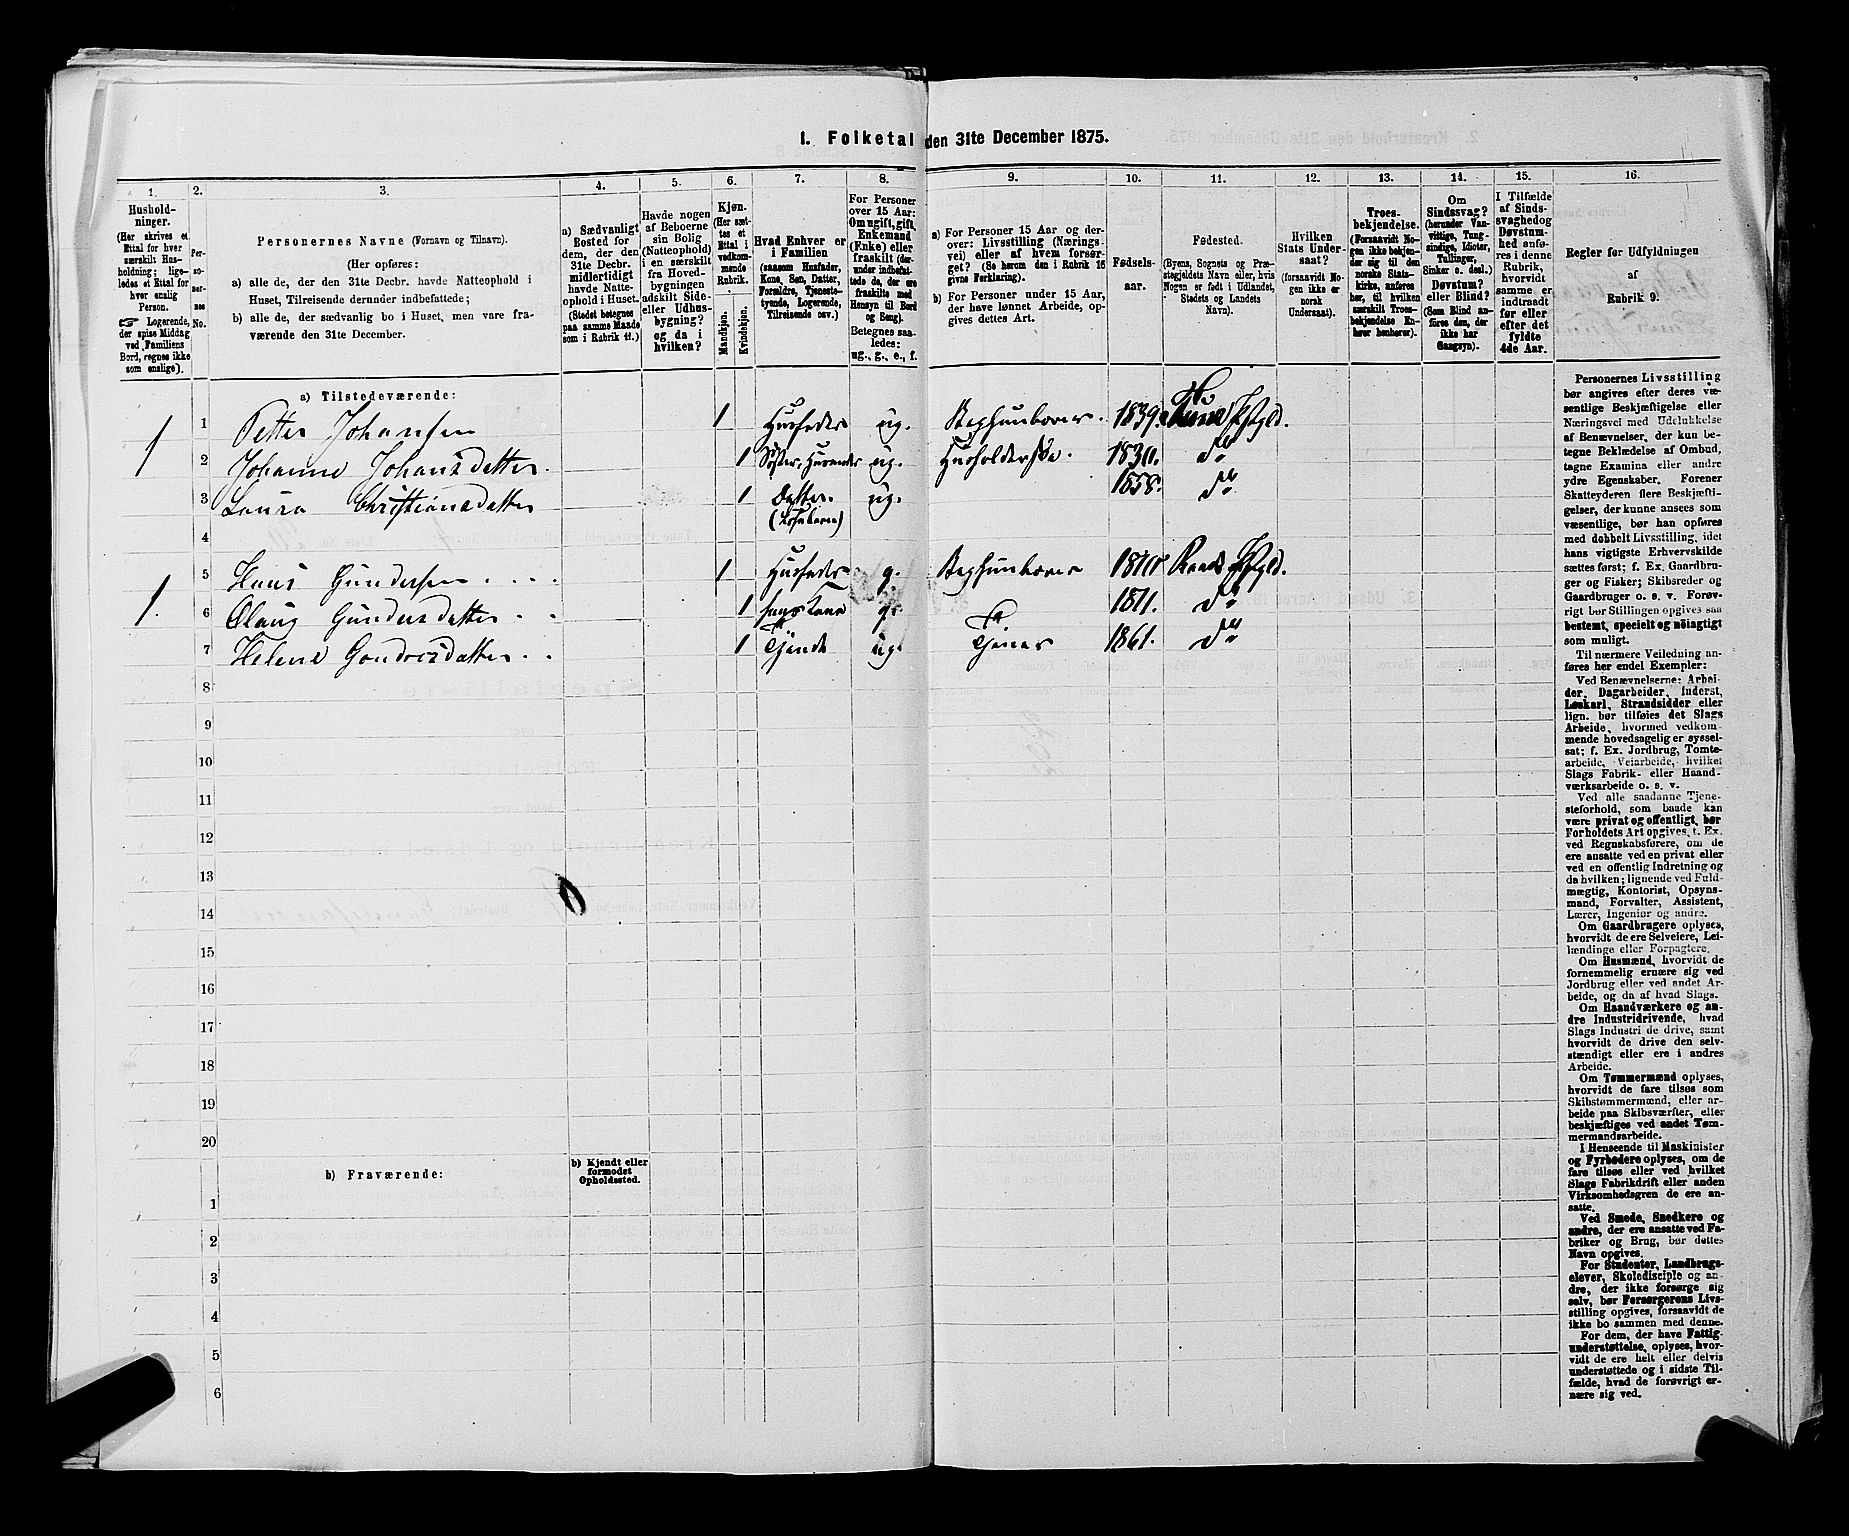 1. Folketal den 31te December 1875.
1. 2. 3. 4. 5. 6. 7. 8. 9. 10. 11. 12. 13. 14. 15. 16.
Husholdninger. (Her skrives et Ettal for hver særskilt Husholdning; ligeledes et Ettal for hver enslig Person.
☞ Logerende, der spise Middag ved Familiens Bord, regnes ikke som enslige).
Personernes No.
Personernes Navne (Fornavn og Tilnavn).
(Her opføres:
a) alle de, der den 31te Decbr. havde Natteophold i Huset, Tilreisende derunder indbefattede;
b) alle de, der sædvanlig bo i Huset, men vare fraværende den 31te December.
a) Sædvanligt Bosted for dem, der den 31te Decbr. midlertidigt havde Natteophold i Huset. (Stedet betegnes paa samme Maade som i Rubrik 11.)
Havde nogen af Beboerne sin Bolig (Natteophold) i en særskilt fra Hovedbygningen adskilt Side- eller Udhusbygning? og da i hvilken?
Kjøn. (Her sættes et Ettal i vedkommende Rubrik.)
Mandkjøn.
Kvindekjøn.
Hvad Enhver er i Familien (saasom Husfader, Kone, Søn, Datter, Forældre, Tjenestetyende, Logerende, Tilreisende osv.)
For Personer over 15 Aar: Om ugift, gift, Enkemand (Enke) eller fraskilt (derunder indbefattede de, der ere fraskilte med Hensyn til Bord og Seng).
Betegnes saaledes: ug., g., e., f.
a) For Personer 15 Aar og derover: Livsstilling (Næringsvei) eller af hvem forsørget? (Se herom den i Rubrik 16 givne Forklaring).
b) For Personer under 15 Aar, der have lønnet Arbeide, opgives dettes Art.
Fødselsaar.
Fødested.
(Byens, Sognets og Præstegjeldets Navn eller, hvis Nogen er født i Udlandet, Stedets og Landets Navn).
Hvilken Stats Undersaat? (forsaavidt Nogen ikke er norsk Undersaat).
Troesbekjendelse. (Forsaavidt Nogen ikke bekjender sig til den norske Statskirke, anføres her, til hvilken særskilt Troesbekjendelse Enhver henhører).
Om Sindssvag? (herunder Vanvittige, Tungsindige, Idioter, Tullinger, Sinker o. desl.) Døvstum? eller Blind? (Som Blind anføres den, der ikke har Gangsyn).
I Tilfælde af Sindssvaghed og Døvstumhed anføres i denne Rubrik, hvorvidt samme er indtraadt før eller efter det fyldte 4de Aar.
Regler for Udfyldningen af Rubrik 9.
a) Tilstedeværende:
1 1 Petter Johansen 1 Husfader ug. 1839.
2 Johanne Johansdatter. 1 Søster, ug. Husholderske. 1830. do
3 Laura Christiansdatter 1 Datter. ug. 1858. do
4
1. 5 Hans Gundersen 1 Husfader g.
6 Olaug Gundersdatter 1 hans Kone g. 1811. do
7 Helene 1 Tjende ug. Tjener 1861. do
8
9
10
11
12
13
14
15
16
17
18
19
20
b) Fraværende:
b) Kjendt eller formodet Opholdssted.
1
2
3
4
5
6
Personernes Livsstilling
bør angives efter deres væ-
sentlige Beskjæftigelse eller
Næringsvei med Udelukkelse
af Benævnelser, der kun be-
tegne Beklædelse af Ombud,
tagne Examina eller andre
ydre Egenskaber. Forener
Skatteyderen flere Beskjæfti-
gelser, der kunne ansees som
væsentlige, bør han opføres
med dobbelt Livsstilling, idet
hans vigtigste Erhvervskilde
sættes først; f. Ex. Gaardbru-
ger og Fisker; Skibsreder og
Gaardbruger o. s. v. Forøv-
rigt bør Stillingen opgives saa
bestemt, specielt og nøiagtigt
som muligt.
Til nærmere Veiledning an-
føres her endel Exempler:
Ved Benævnelserne: Arbei-
der, Dagarbeider, Inderst,
Løskarl, Strandsidder eller
lign. bør tilføies det Slags
Arbeide, hvormed vedkom-
mende hovedsagelig er syssel-
sat; f. Ex. Jordbrug, Tomte-
arbeide, Veiarbeide, hvilket
Slags Fabrik- eller Haand-
værksarbeide o. s. v.
Ved alle saadanne Tjene-
steforhold, som baade kan
være privat og offentligt, bør
Forholdets Art opgives, t. Ex.
ved Regnskabsførere, om de
ere ansatte ved en privat eller
ved en offentlig Indretning og
da hvilken; lignende ved Fuld-
mægtig, Kontorist, Opsyns-
mand, Forvalter, Assistent,
Lærer, Ingeniør og andre.
Om Gaardbrugere oplyses,
hvorvidt de ere Selveiere, Lei-
lændinge eller Forpagtere.
Om Husmænd, hvorvidt de
fornemmelig ernære sig ved
Jordbrug eller ved andet Ar-
beide, og da af hvad Slags.
Om Haandværkere og an-
dre Industridrivende, hvad
Slags Industri de drive, samt
hvorvidt de drive den selv-
stændigt eller ere i andres
Arbeide.
Om Tømmermænd oplyses,
hvorvidt de fare tilsøs som
Skibstømmermænd, eller ar-
beide paa Skibsværfter, eller
beskjæftiges ved andet Tøm-
mermandsarbeide.
I Henseende til Maskinister
og Fyrbødere oplyses, om de
fare tilsøs eller ved hvilket
Slags Fabrikdrift eller anden
Virksomhedsgren de ere an-
satte.
Ved Smede, Snedkere og
andre, der ere ansatte ved Fa-
briker og Brug, bør dettes
Navn opgives.
For Studenter, Landbrugs-
elever, Skoledisciple og an-
dre, der ikke forsørge sig
selv, bør Forsørgerens Livs-
stilling opgives, forsaavidt de
ikke bo sammen med denne.
For dem, der have Fattig-
understøttelse, oplyses, hvor-
vidt de ere helt eller delvis
understøttede og i sidste Til-
fælde, hvad de forøvrigt er-
nære sig ved.